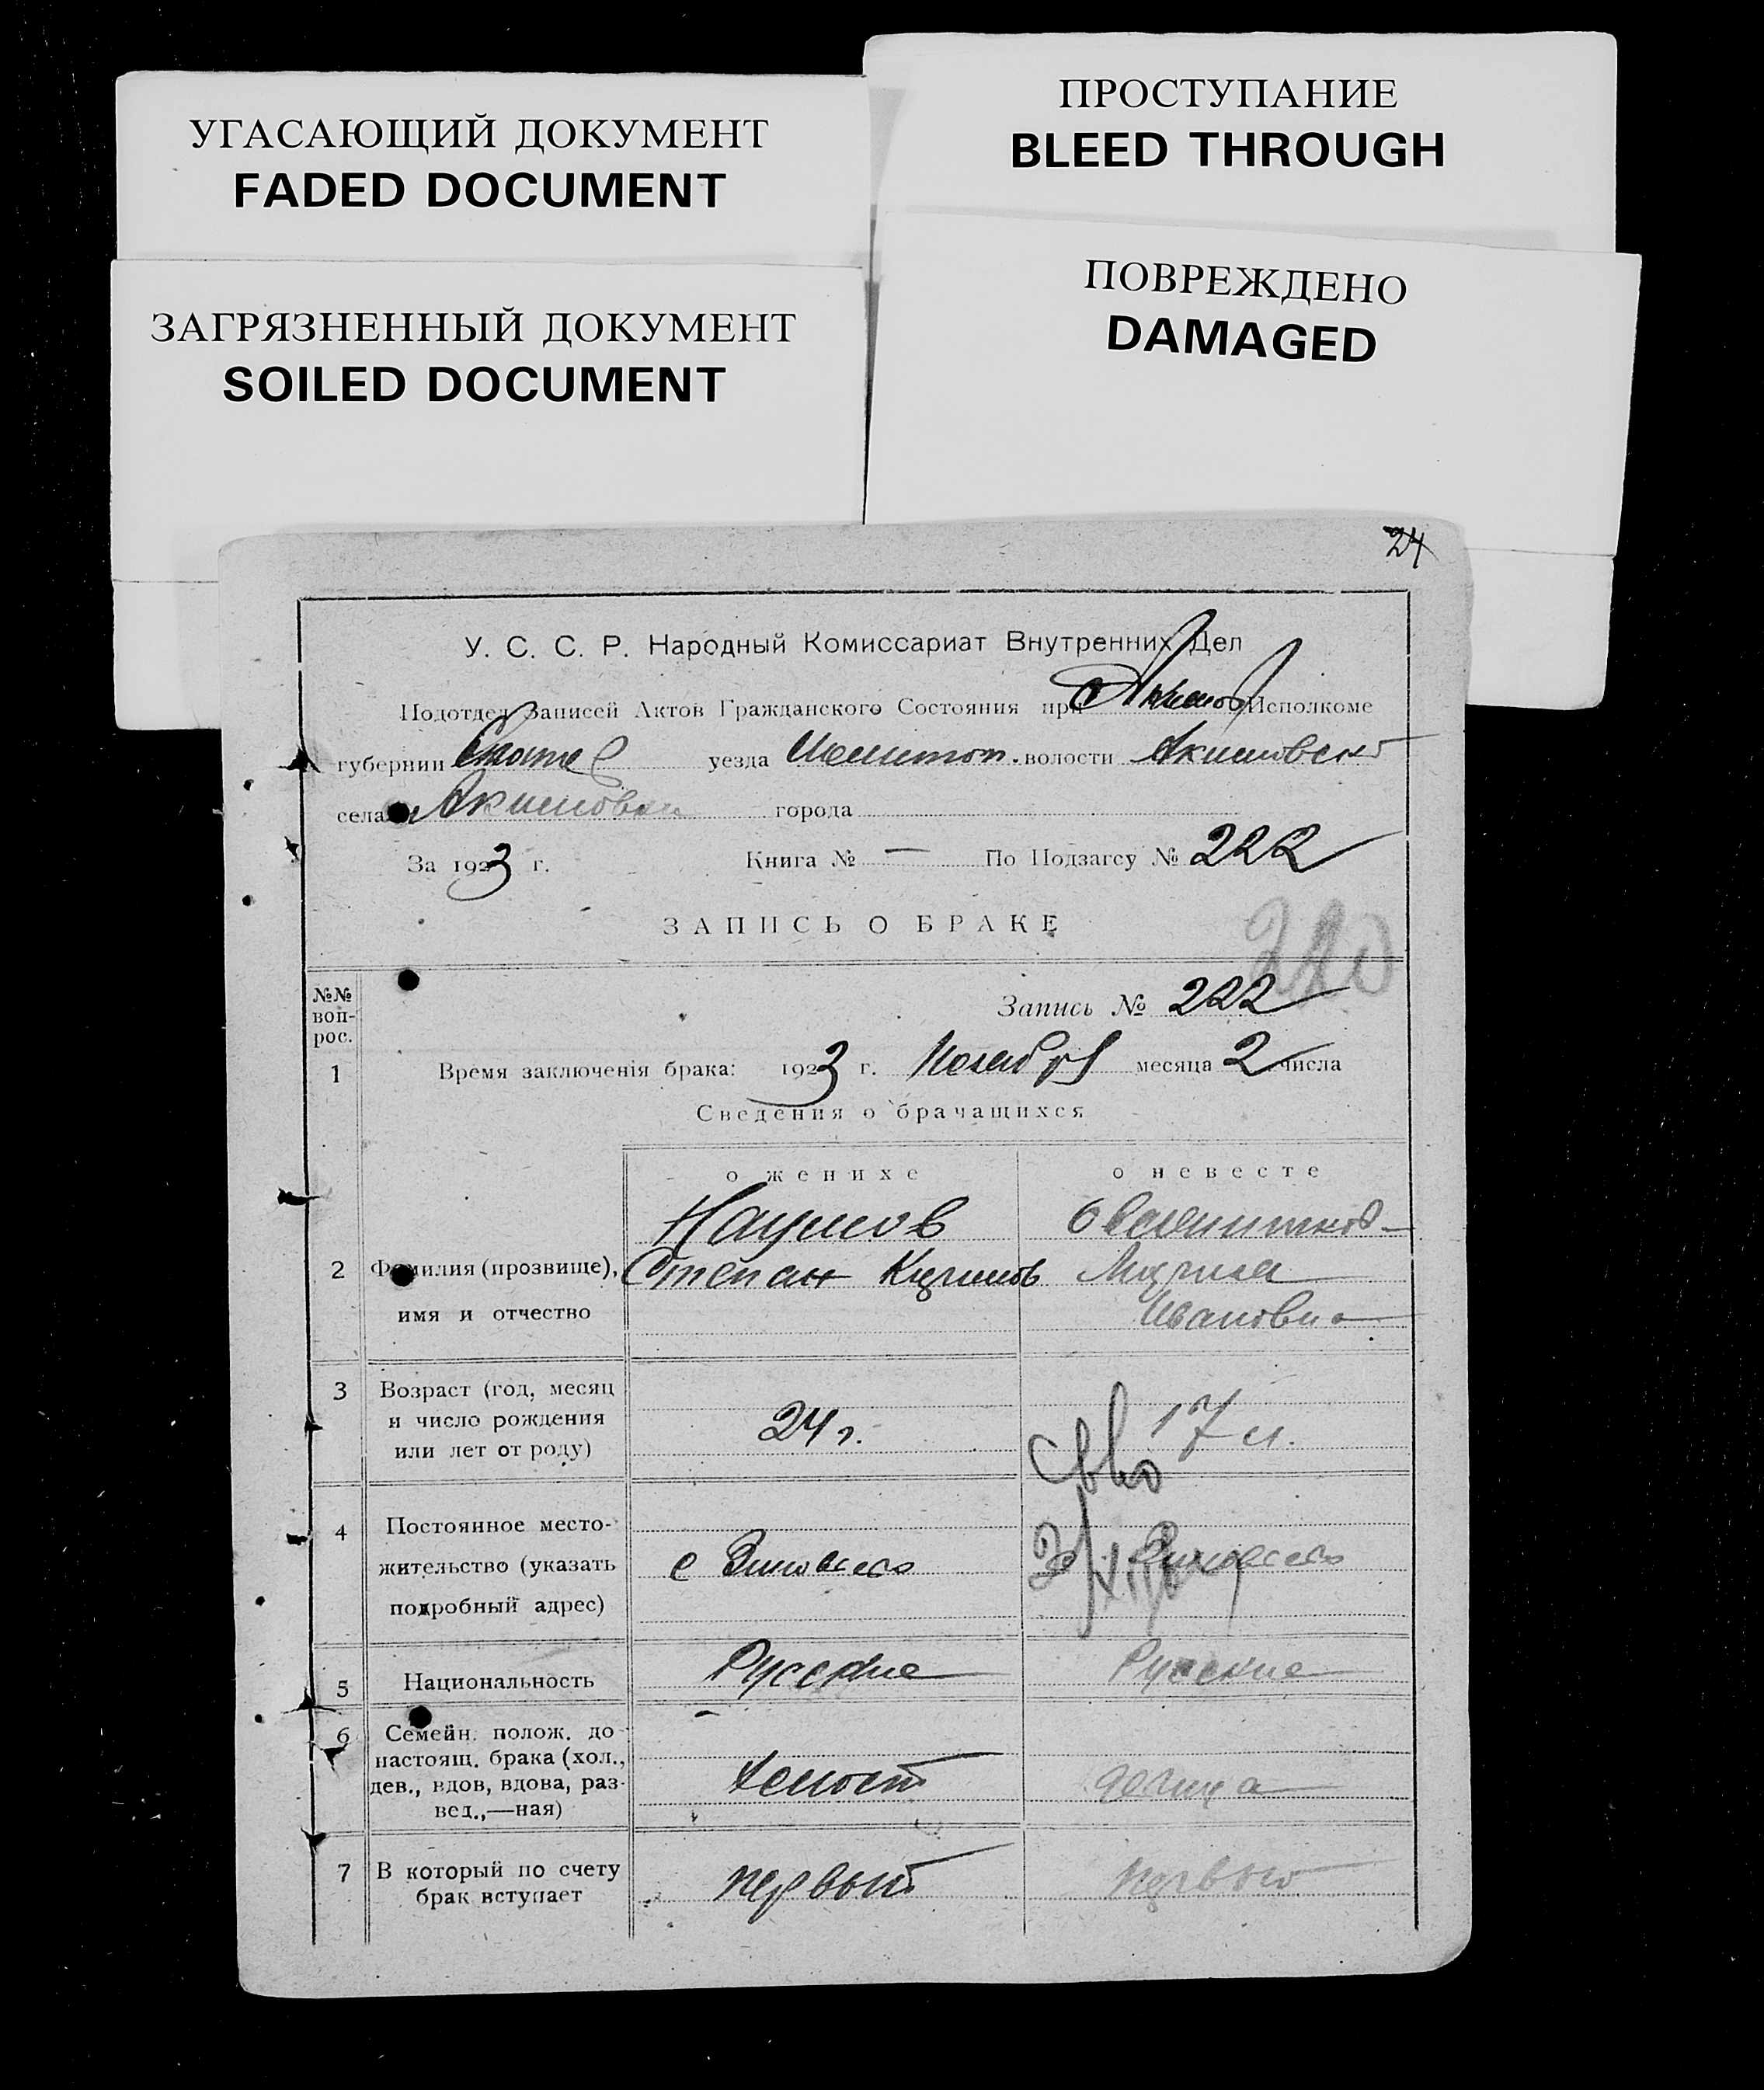 УГАСАЮЩИЙ ДОКУМЕНТ
FADED DOCUMENT
ПРОСТУПАНИЕ
BLEED THROUGH
ЗАГРЯЗНЕННЫЙ ДОКУМЕНТ
SOILED DOCUMENT
ПОВРЕЖДЕНО
DAMAGED
24
У. С. С. Р. Народный Комиссариат Внутренних Дел
Подотдел Записей Актов Гражданского Состояния при Акимов Исполкоме
губернии уезда Мелитоп. волости Акимовской
села Акимовки города
За 1923 г. Книга № — По Подзагсу № 222
ЗАПИСЬ О БРАКЕ
№№ вопрос.
Запись № 222
1 Время заключенія брака: 1923 г. Ноября месяца 2 числа
Сведения о брачащихся
о женихе о невесте
2 Фамилия (прозвище), имя и отчество
Наумов
Степан
Ивановна
3 Возраст (год, месяц и число рождения или лет от роду)
24 г. 17 л.
4 Постоянное местожительство (указать подробный адрес)
5 Национальность
Русские Русские
6 Семейн. полож. до настоящ. брака (хол., дев., вдов, вдова, развед.,—ная)
девица
7 В который по счету брак вступает
первый первый